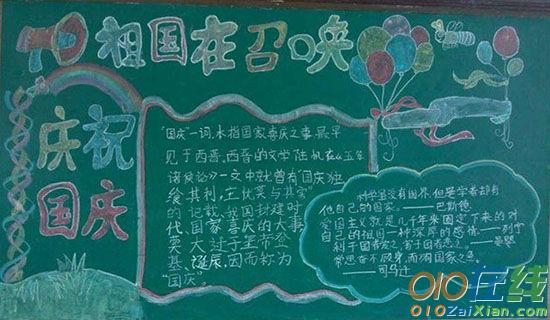 祖国在召唤
庆祝
国庆
"国庆"一词,本指国家喜庆之事,最早
见于西晋,西晋的文学陆机在《五等
诸侯论》一文中就曾有"国庆独
飨其利,主忧莫与其害"
的记载、我国封建时
代、国家喜庆的大事
莫大过于皇帝登
基、诞辰,因而称为
"国庆"。
科学虽没有国界,但是学者却有
他自己的国家。——巴斯德
爱国主义就是几千年来固定下来的对
自己的祖国一种深厚的感情。——列宁
利于国者爱之,害于国者恶之。——晏婴
常思奋不顾身,而殉国家之急。
——司马迁
010在线
010ZaiXian.com